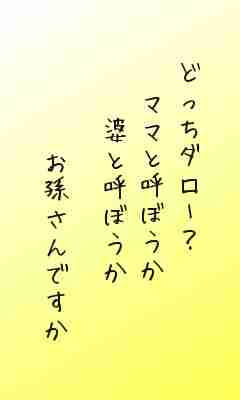 どっちダロー？
ママと呼ぼうか
婆と呼ぼうか
お孫さんですか